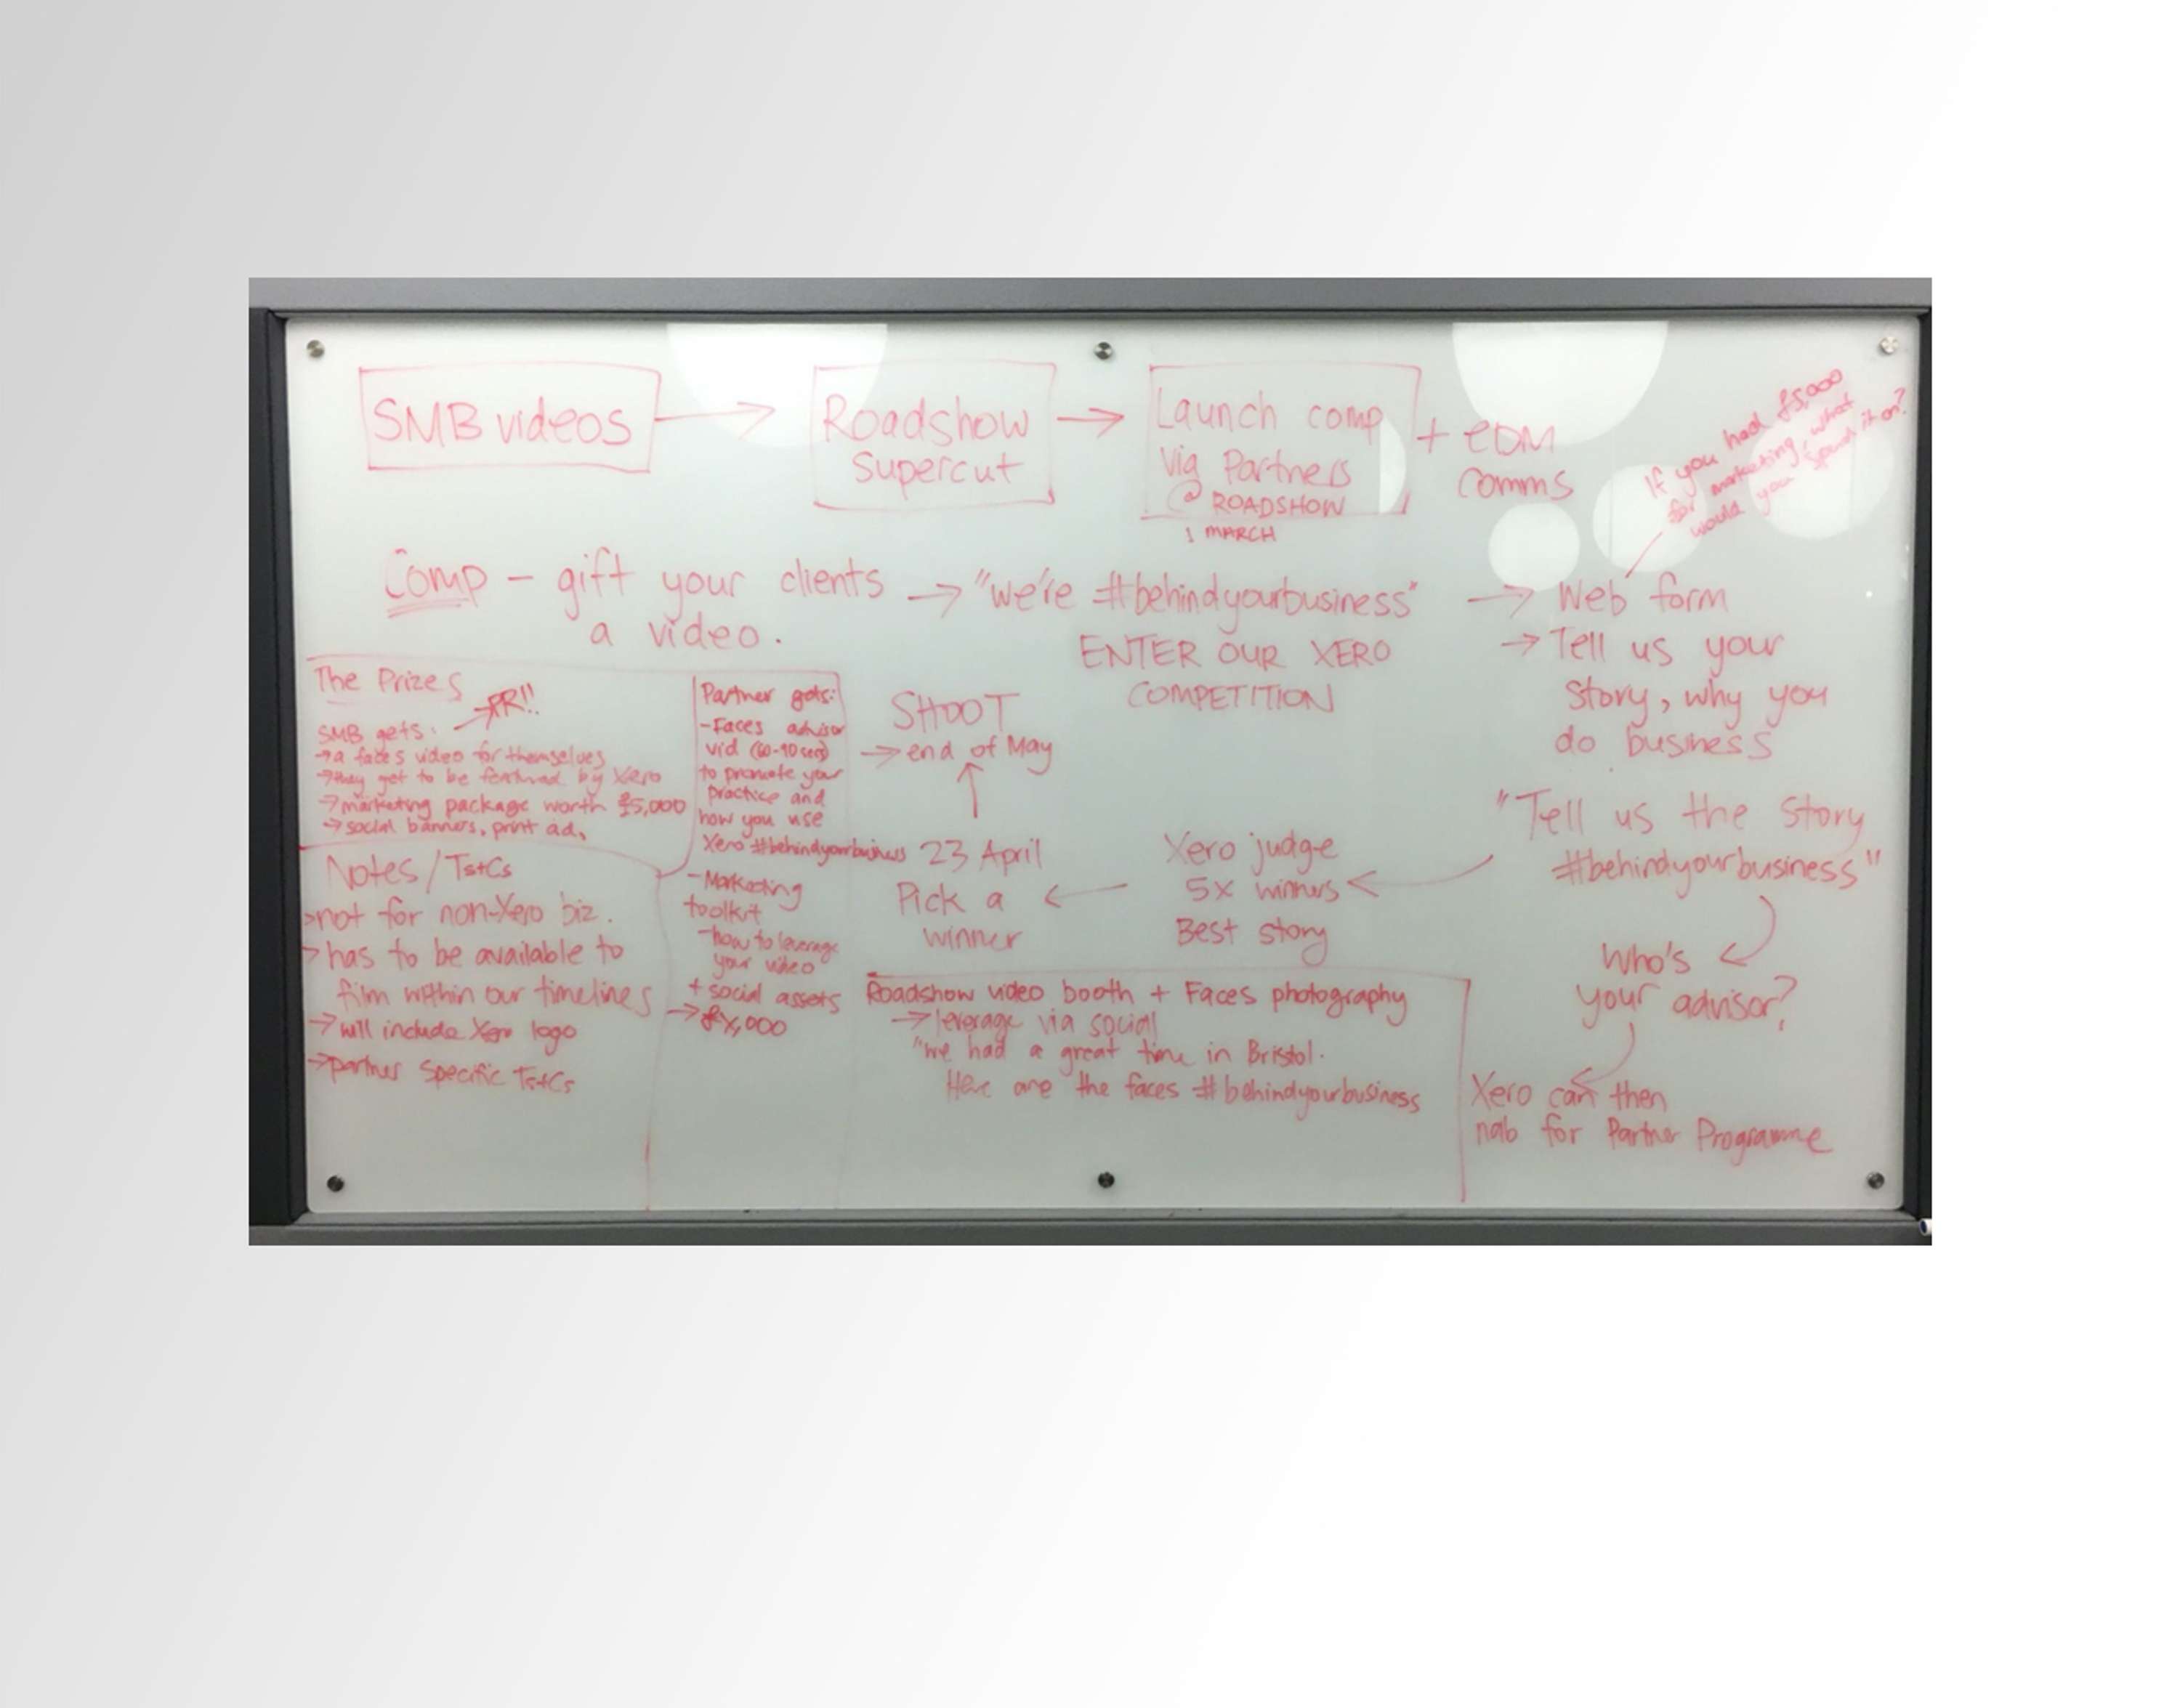 SMB videos
Roadshow
Supercut
Launch comp
via Partners
@ ROADSHOW
1 MARCH
+ eDM
comms
If you had £5,000
for marketing, what
would you spend it on?
Comp - gift your clients
a video.
"we're #behindyourbusiness"
ENTER OUR XERO
COMPETITION
Web form
Tell us your
story, why you
do business
"Tell us the story
#behindyourbusiness"
Who's
your advisor?
Xero can then
nab for Partner Programme
Xero judge
5x winners
Best story
23 April
Pick a
winner
SHOOT
end of May
The Prizes
PR!!
SMB gets:
a faces video for themselves
they get to be featured by Xero
marketing package worth £5,000
social banners, print ad,
Partner gets:
- Faces advisor
vid (60-90 secs)
to promote your
practice and
how you use
Xero #behindyourbusiness
- Marketing
toolkit
- how to leverage
your video
+ social assets
£X,000
Notes/Ts+Cs
not for non-Xero biz.
has to be available to
film within our timelines
will include Xero logo
partner specific Ts+Cs
Roadshow video booth + Faces photography
leverage via social
"We had a great time in Bristol.
Here are the faces #behindyourbusiness